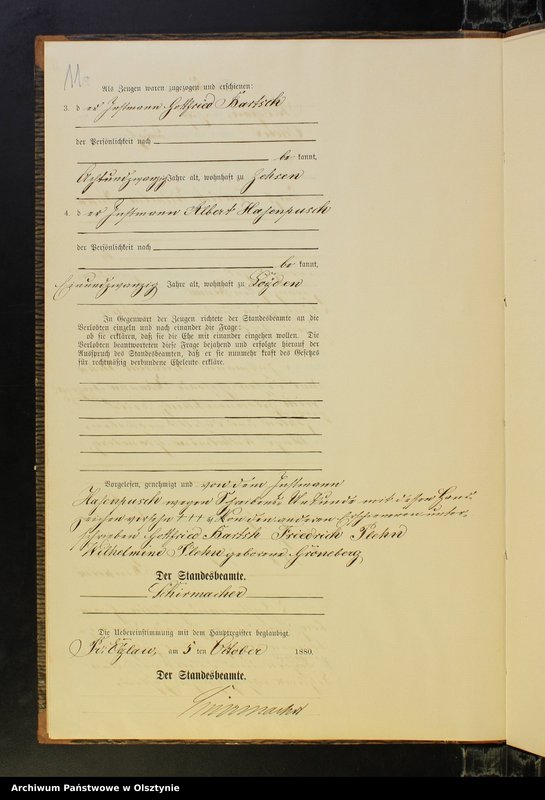 11
Als Zeugen waren zugezogen und erschienen:
3. d er Instmann Gottfried Bartsch
der Persönlichkeit nach
be kannt,
Achtundzwanzig Jahre alt, wohnhaft zu Zohsen
4. d er Instmann Albert Hasenpusch
der Persönlichkeit nach
be kannt,
Einundzwanzig Jahre alt, wohnhaft zu Loyden
In Gegenwart der Zeugen richtete der Standesbeamte an die
Verlobten einzeln und nach einander die Frage:
ob sie erklären, daß sie die Ehe mit einander eingehen wollen. Die
Verlobten beantworteten diese Frage bejahend und erfolgte hierauf der
Ausspruch des Standesbeamten, daß er sie nunmehr kraft des Gesetzes
für rechtmäßig verbundene Eheleute erkläre.
Vorgelesen, genehmigt und von dem Instmann
Hasenpusch wegen Schreibens Unkunde mit dessen Hand
zeichen versehen +++ Von den anderen Erschienenen unter
schrieben Gottfried Bartsch Friedrich Plehn
Wilhelmine Plehn geborene Gröneberg
Der Standesbeamte.
Schirmacher
Die Uebereinstimmung mit dem Hauptregister beglaubigt.
Pr. Eylau, am 5 ten October 1880.
Der Standesbeamte.
Schirmacher
Archiwum Państwowe w Olsztynie